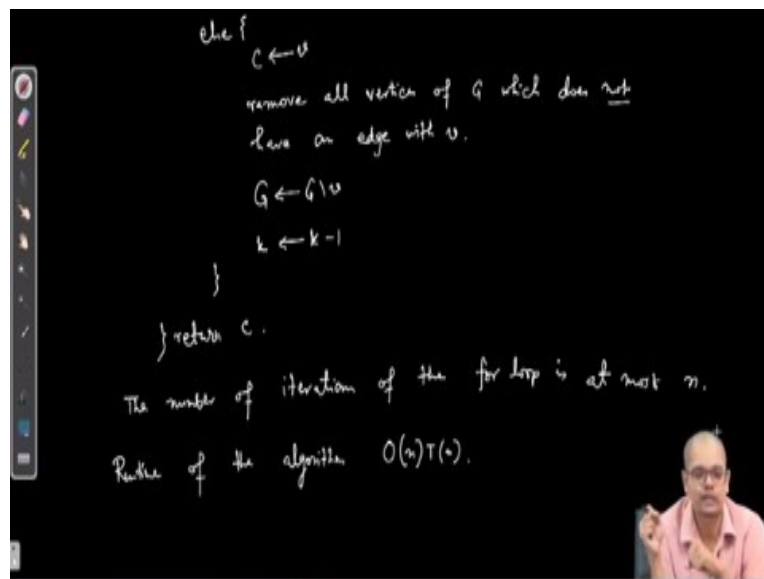 else {
C ← v
remove all vertices of G which does not
have an edge with v.
G ← G \ v
k ← k - 1
}
} return C.
The number of iterations of the for loop is at most n.
Runtime of the algorithm O(n)T(n).